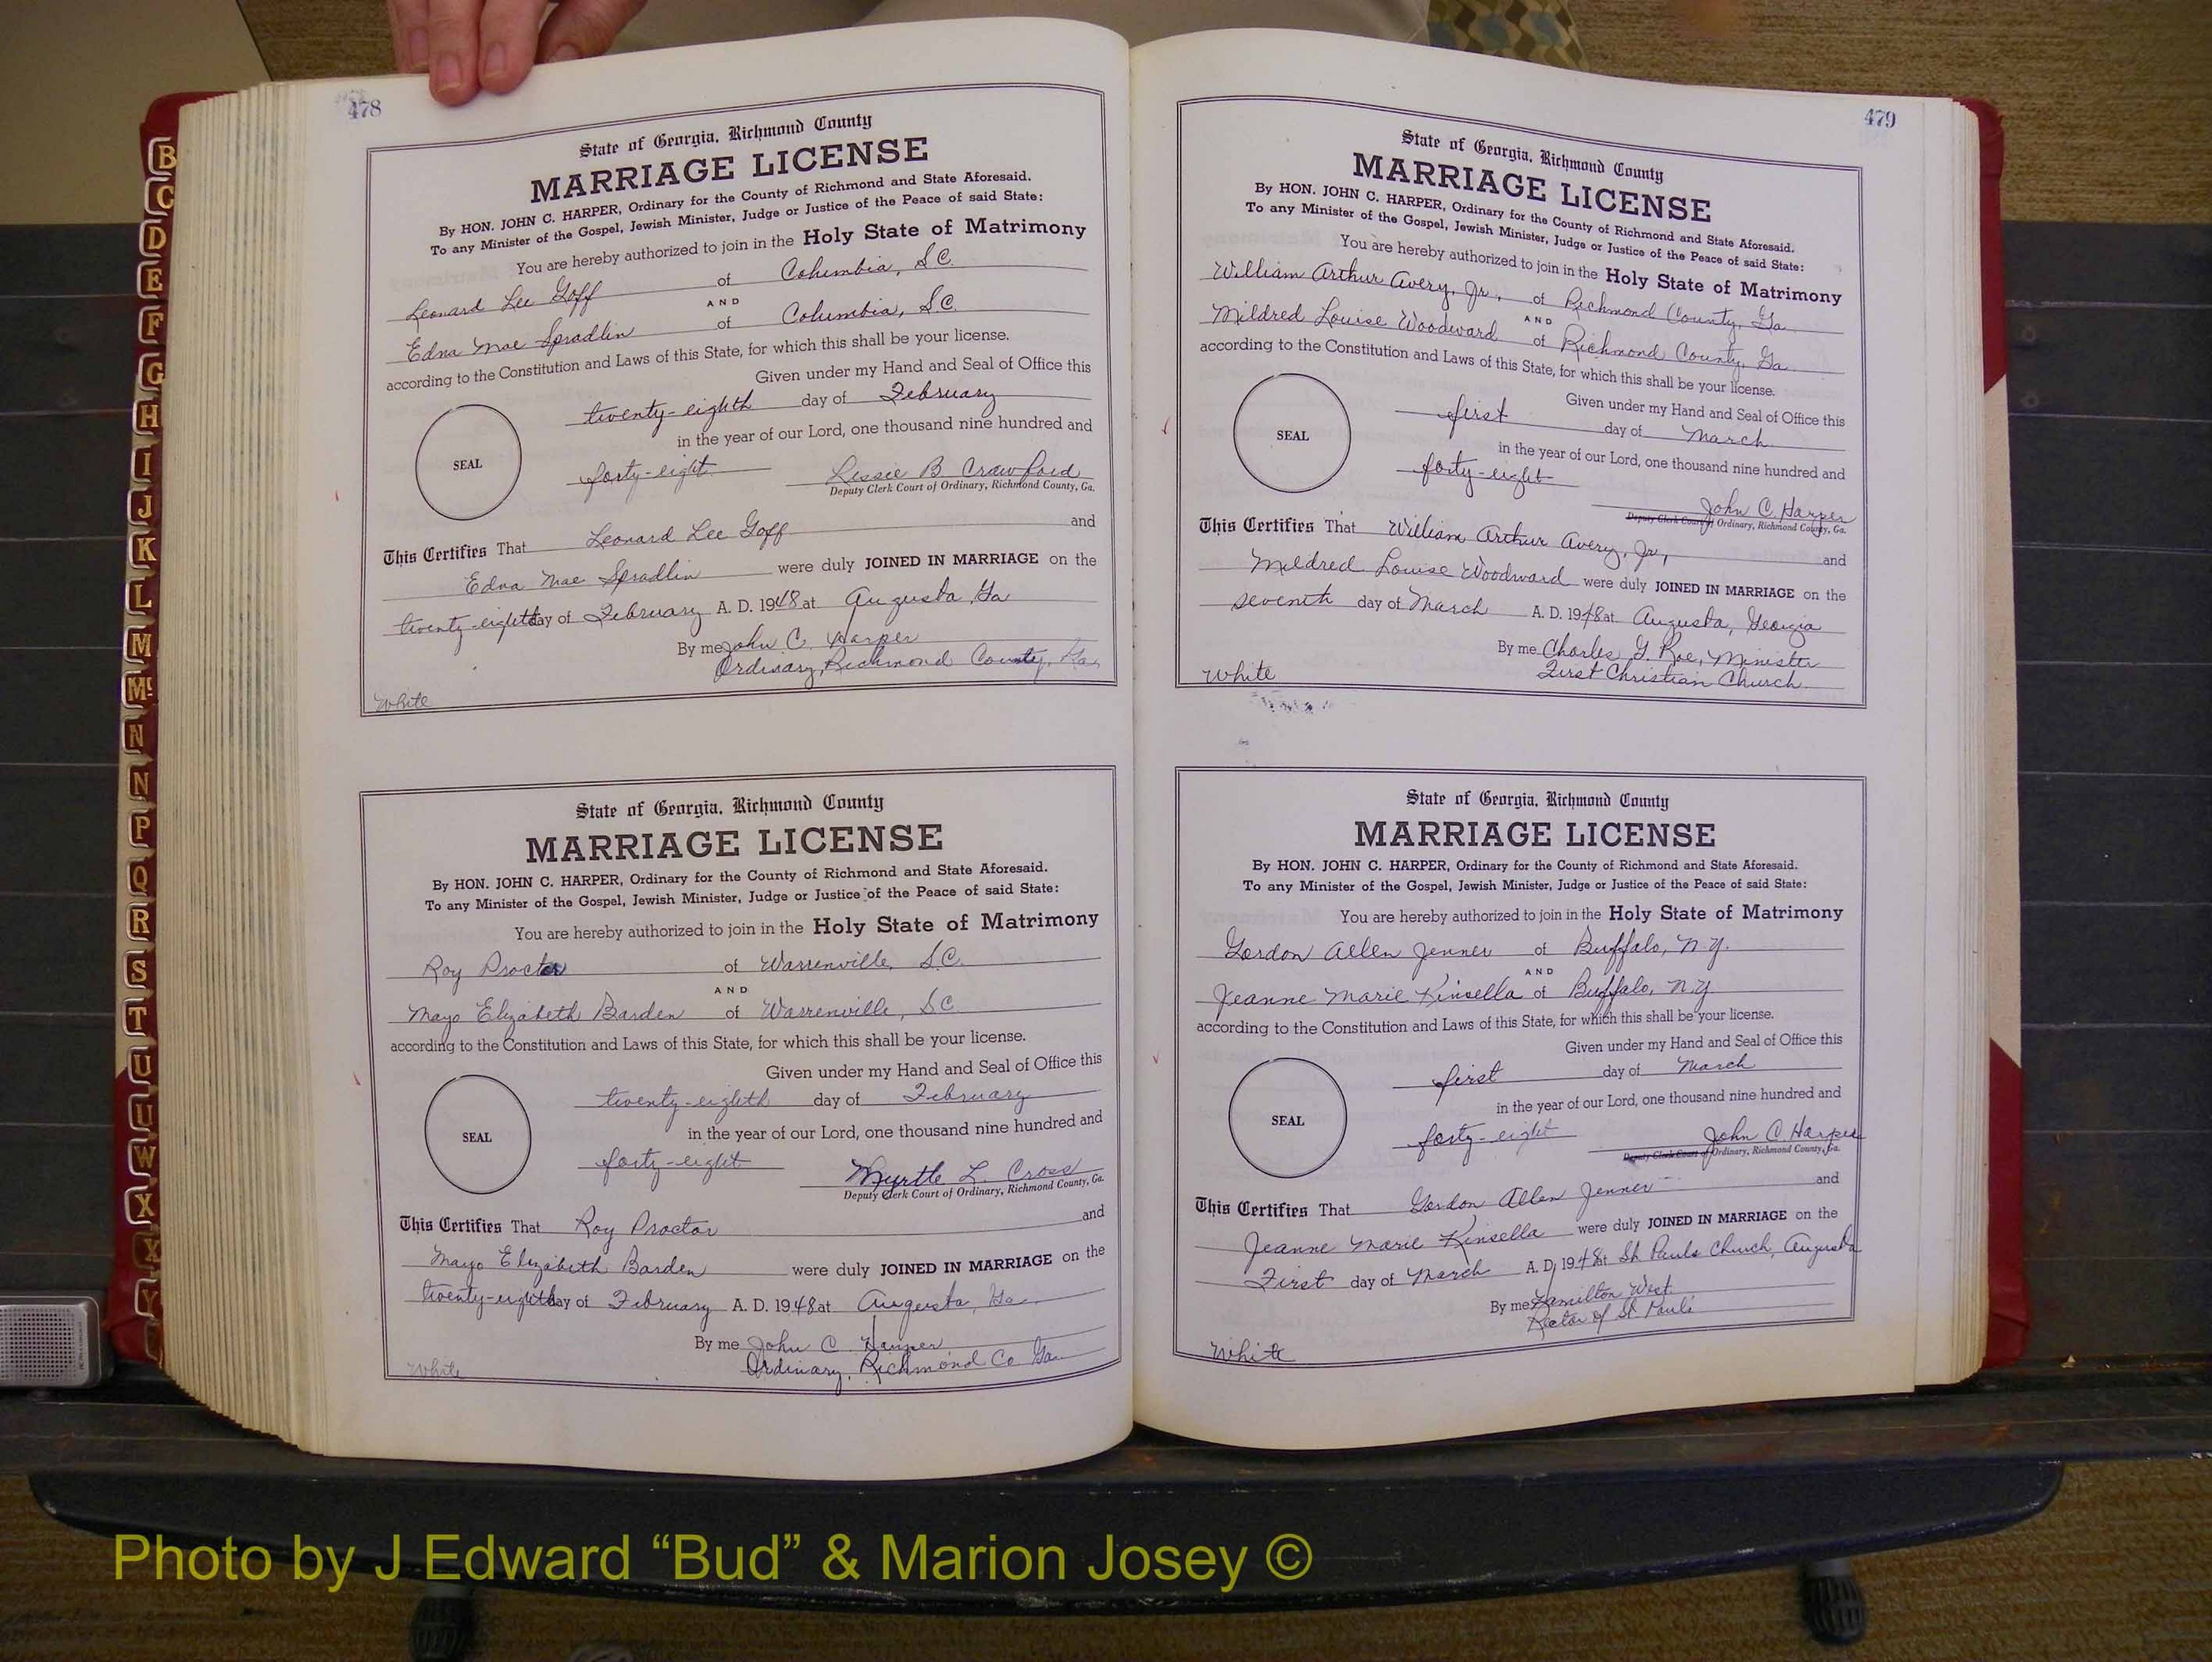 478
State of Georgia, Richmond County
MARRIAGE LICENSE
By HON. JOHN C. HARPER, Ordinary for the County of Richmond and State Aforesaid.
To any Minister of the Gospel, Jewish Minister, Judge or Justice of the Peace of said State:
You are hereby authorized to join in the Holy State of Matrimony
Leonard Lee Goff of Columbia, S.C.
AND
Edna Mae Spradlin of Columbia, S.C.
according to the Constitution and Laws of this State, for which this shall be your license.
Given under my Hand and Seal of Office this
twenty-eighth day of February
in the year of our Lord, one thousand nine hundred and
SEAL
forty-eight Lessee B Crawford
Deputy Clerk Court of Ordinary, Richmond County, Ga.
This Certifies That Leonard Lee Goff and
Edna Mae Spradlin were duly JOINED IN MARRIAGE on the
twenty-eighth day of February A. D. 1948 at Augusta, Ga
By me John C. Harper
Ordinary, Richmond County, Ga.
White
State of Georgia, Richmond County
MARRIAGE LICENSE
By HON. JOHN C. HARPER, Ordinary for the County of Richmond and State Aforesaid.
To any Minister of the Gospel, Jewish Minister, Judge or Justice of the Peace of said State:
You are hereby authorized to join in the Holy State of Matrimony
Roy Proctor of Warrenville, S.C.
AND
Mayo Elizabeth Barden of Warrenville, S.C.
according to the Constitution and Laws of this State, for which this shall be your license.
Given under my Hand and Seal of Office this
twenty-eighth day of February
in the year of our Lord, one thousand nine hundred and
SEAL
forty-eight Myrtle L. Cross
Deputy Clerk Court of Ordinary, Richmond County, Ga.
This Certifies That Roy Proctor and
Mayo Elizabeth Barden were duly JOINED IN MARRIAGE on the
twenty-eighth day of February A. D. 1948 at Augusta, Ga.
By me John C Harper
Ordinary, Richmond Co Ga
White
479
State of Georgia, Richmond County
MARRIAGE LICENSE
By HON. JOHN C. HARPER, Ordinary for the County of Richmond and State Aforesaid.
To any Minister of the Gospel, Jewish Minister, Judge or Justice of the Peace of said State:
You are hereby authorized to join in the Holy State of Matrimony
William Arthur Avery, Jr., of Richmond County, Ga
AND
Mildred Louise Woodward of Richmond County, Ga.
according to the Constitution and Laws of this State, for which this shall be your license.
Given under my Hand and Seal of Office this
first day of March
in the year of our Lord, one thousand nine hundred and
SEAL
forty-eight John C. Harper
Deputy Clerk Court of Ordinary, Richmond County, Ga.
This Certifies That William Arthur Avery, Jr., and
Mildred Louise Woodward were duly JOINED IN MARRIAGE on the
seventh day of March A. D. 1948 at Augusta, Georgia
By me Charles G. Roe, Minister
First Christian Church
White
State of Georgia, Richmond County
MARRIAGE LICENSE
By HON. JOHN C. HARPER, Ordinary for the County of Richmond and State Aforesaid.
To any Minister of the Gospel, Jewish Minister, Judge or Justice of the Peace of said State:
You are hereby authorized to join in the Holy State of Matrimony
Gordon Allen Jenner of Buffalo, N.Y.
AND
Jeanne Marie Kinsella of Buffalo, N.Y.
according to the Constitution and Laws of this State, for which this shall be your license.
Given under my Hand and Seal of Office this
first day of March
in the year of our Lord, one thousand nine hundred and
SEAL
forty-eight John C. Harper
Deputy Clerk Court of Ordinary, Richmond County, Ga.
This Certifies That Gordon Allen Jenner and
Jeanne Marie Kinsella were duly JOINED IN MARRIAGE on the
First day of March A. D. 1948 at St. Pauls Church, Augusta
By me Hamilton West
Rector of St Pauls
White
B
C
D
E
F
G
H
I
J
K
L
M
Mc
N
N
P
Q
R
S
T
U
U
W
X
X
Y
Photo by J Edward “Bud” & Marion Josey ©